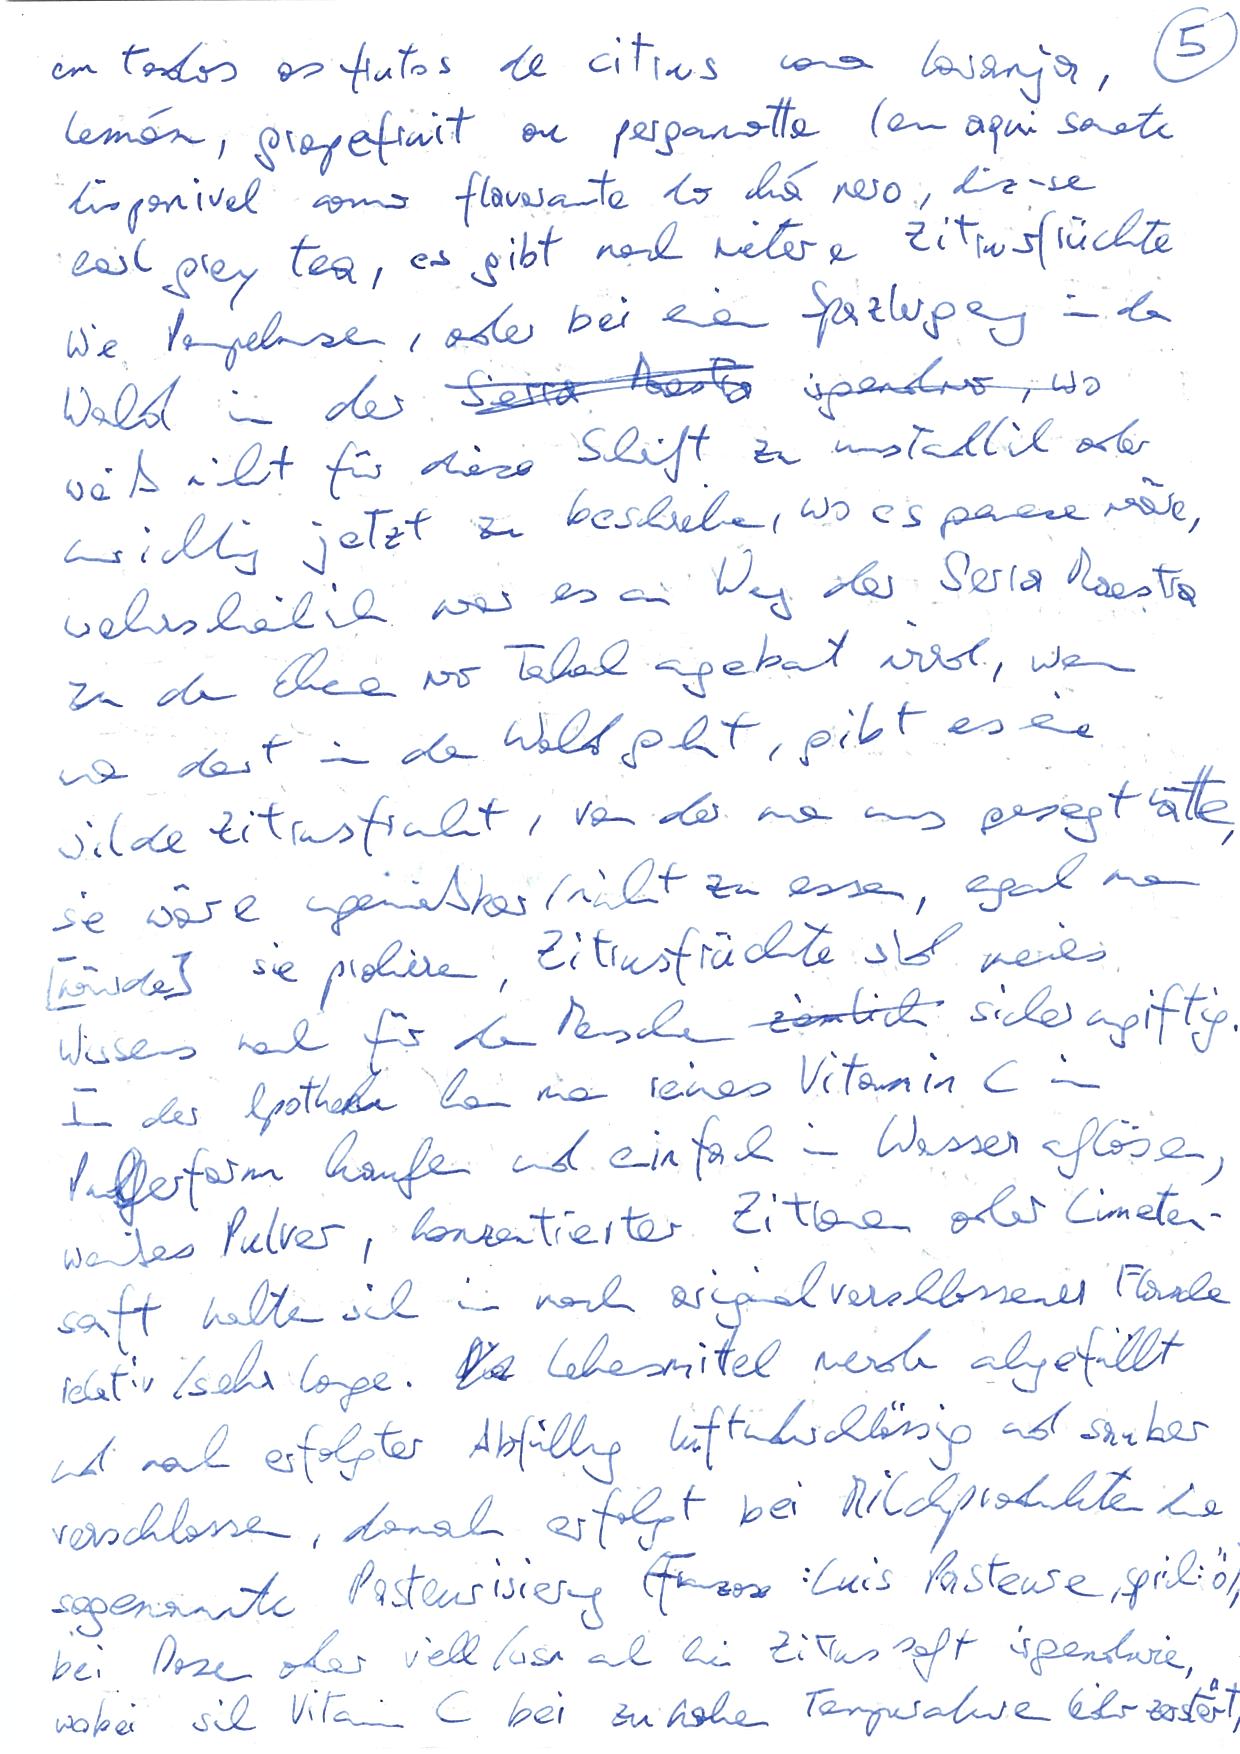 5
em todos os frutos de citrus como laranja,
lemón, grapefruit ou pergamotte (em aqui
disponivel como flavorante do chá nero, diz-se
earl grey tea, es gibt noch weitere Zitrusfrüchte
wie Pampelmusen, oder bei einem Spaziergang in den
Wald in der Serra Maestra irgendwo, wo
weiß nicht für diese Schrift zu oder
unwichtig jetzt zu beschreiben, wo es genau wäre,
wahrscheinlich war es am Weg der Serra Maestra
zu den wo Tabak angebaut wird, wenn
man dort in den Wald geht, gibt es eine
wilde Zitrusfrucht, von der man uns gesagt hätte,
sie wäre ungenießbar/nicht zu essen, egal man
[würde] sie probieren, Zitrusfrüchte sind meines
Wissens nach für den Menschen ziemlich sicher ungiftig.
In der Apotheke kann man reines Vitamin C in
Pulverform kaufen und einfach in Wasser auflösen,
weißes Pulver, konzentrierter Zitronen oder Limetten-
saft halten sich in noch originalverschlossener Flasche
relativ/sehr lange. Die Lebensmittel werden abgefüllt
und nach erfolgter Abfüllung luftundurchlässig und sauber
verschlossen, danach erfolgt bei Milchprodukten die
sogenannte Pasteurisierung (Franzose: Luis Pasteure, sprich: ö),
bei Dosen oder viell auch bei Zitrussaft irgendwie,
wobei sich Vitamin C bei zu hohen Temperaturen zerstört,